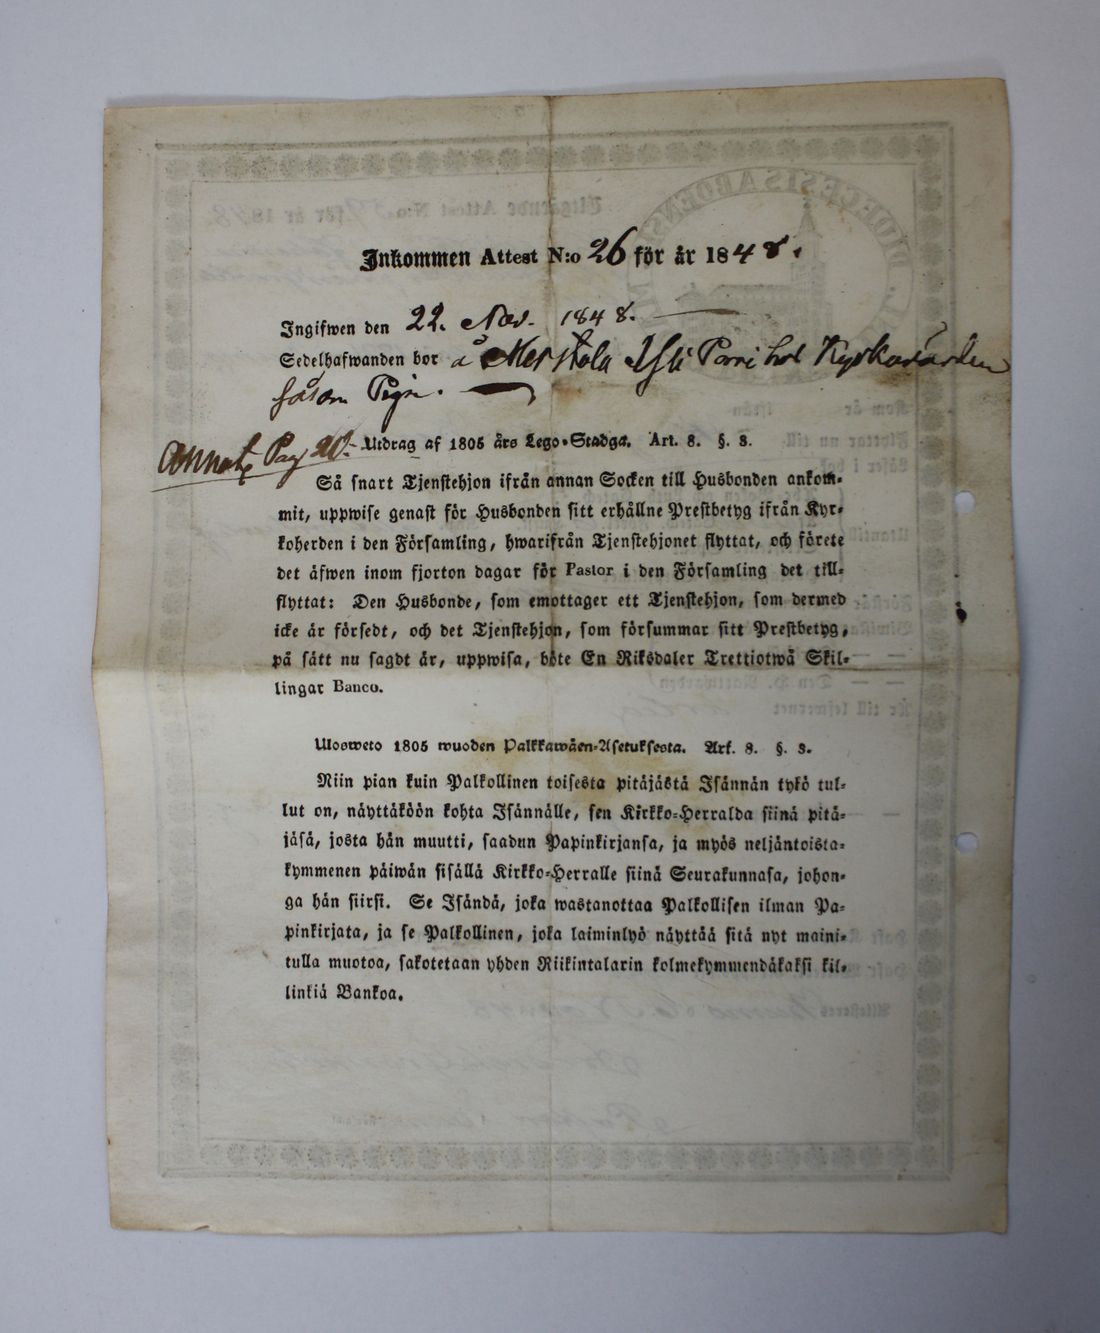 Inkommen Attest N:o 26 för år 1848.
Ingifwen den 22. Nov. 1848.
Sedelhafwanden bor å
såsom Piga.
Annot. Pag.
Utdrag af 1805 års Lego-Stadga. Art. 8. §. 3.
Så snart Tjenstehjon ifrån annan Socken till Husbonden ankom-
mit, uppwise genast för Husbonden sitt erhållne Prestbetyg ifrån Kyr-
koherden i den Församling, hwarifrån Tjenstehjonet flyttat, och förete
det äfwen inom fjorton dagar för Pastor i den Församling det till-
flyttat: Den Husbonde, som emottager ett Tjenstehjon, som dermed
icke är försedt, och det Tjenstehjon, som försummar sitt Prestbetyg,
på sätt nu sagdt är, uppwisa, böte En Riksdaler Trettiotwå Skil-
lingar Banco.
Ulosweto 1805 wuoden Palkkawäen-Asetuksesta. Art. 8. §. 3.
Niin pian kuin Palkollinen toisesta pitäjästä Isännän tykö tul-
lut on, näyttäköön kohta Isännälle, sen Kirkko-Herralda siinä pitä-
jäsä, josta hän muutti, saadun Papinkirjansa, ja myös neljäntoista-
kymmenen päiwän sisällä Kirkko-Herralle siinä Seurakunnasa, johon-
ga hän siirsi. Se Isändä, joka wastanottaa Palkollisen ilman Pa-
pinkirjata, ja se Palkollinen, joka laiminlyö näyttää sitä nyt maini-
tulla muotoa, sakotetaan yhden Riikintalarin kolmekymmendäkaksi kil-
linkiä Bankoa.